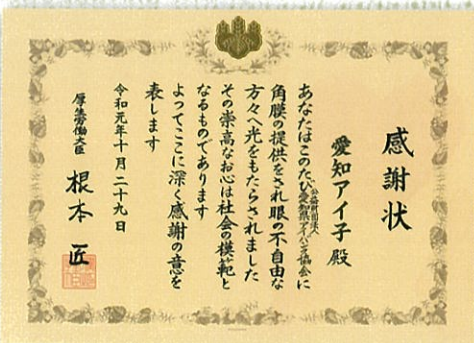 感謝状
愛知アイ子殿
あなたはこのたび公益財団法人愛知県アイバンク協会に
角膜の提供をされ眼の不自由な
方々へ光をもたらされました
その崇高なお心は社会の模範と
なるものであります
よってここに深く感謝の意を
表します
令和元年十月二十九日
厚生労働大臣 根本匠